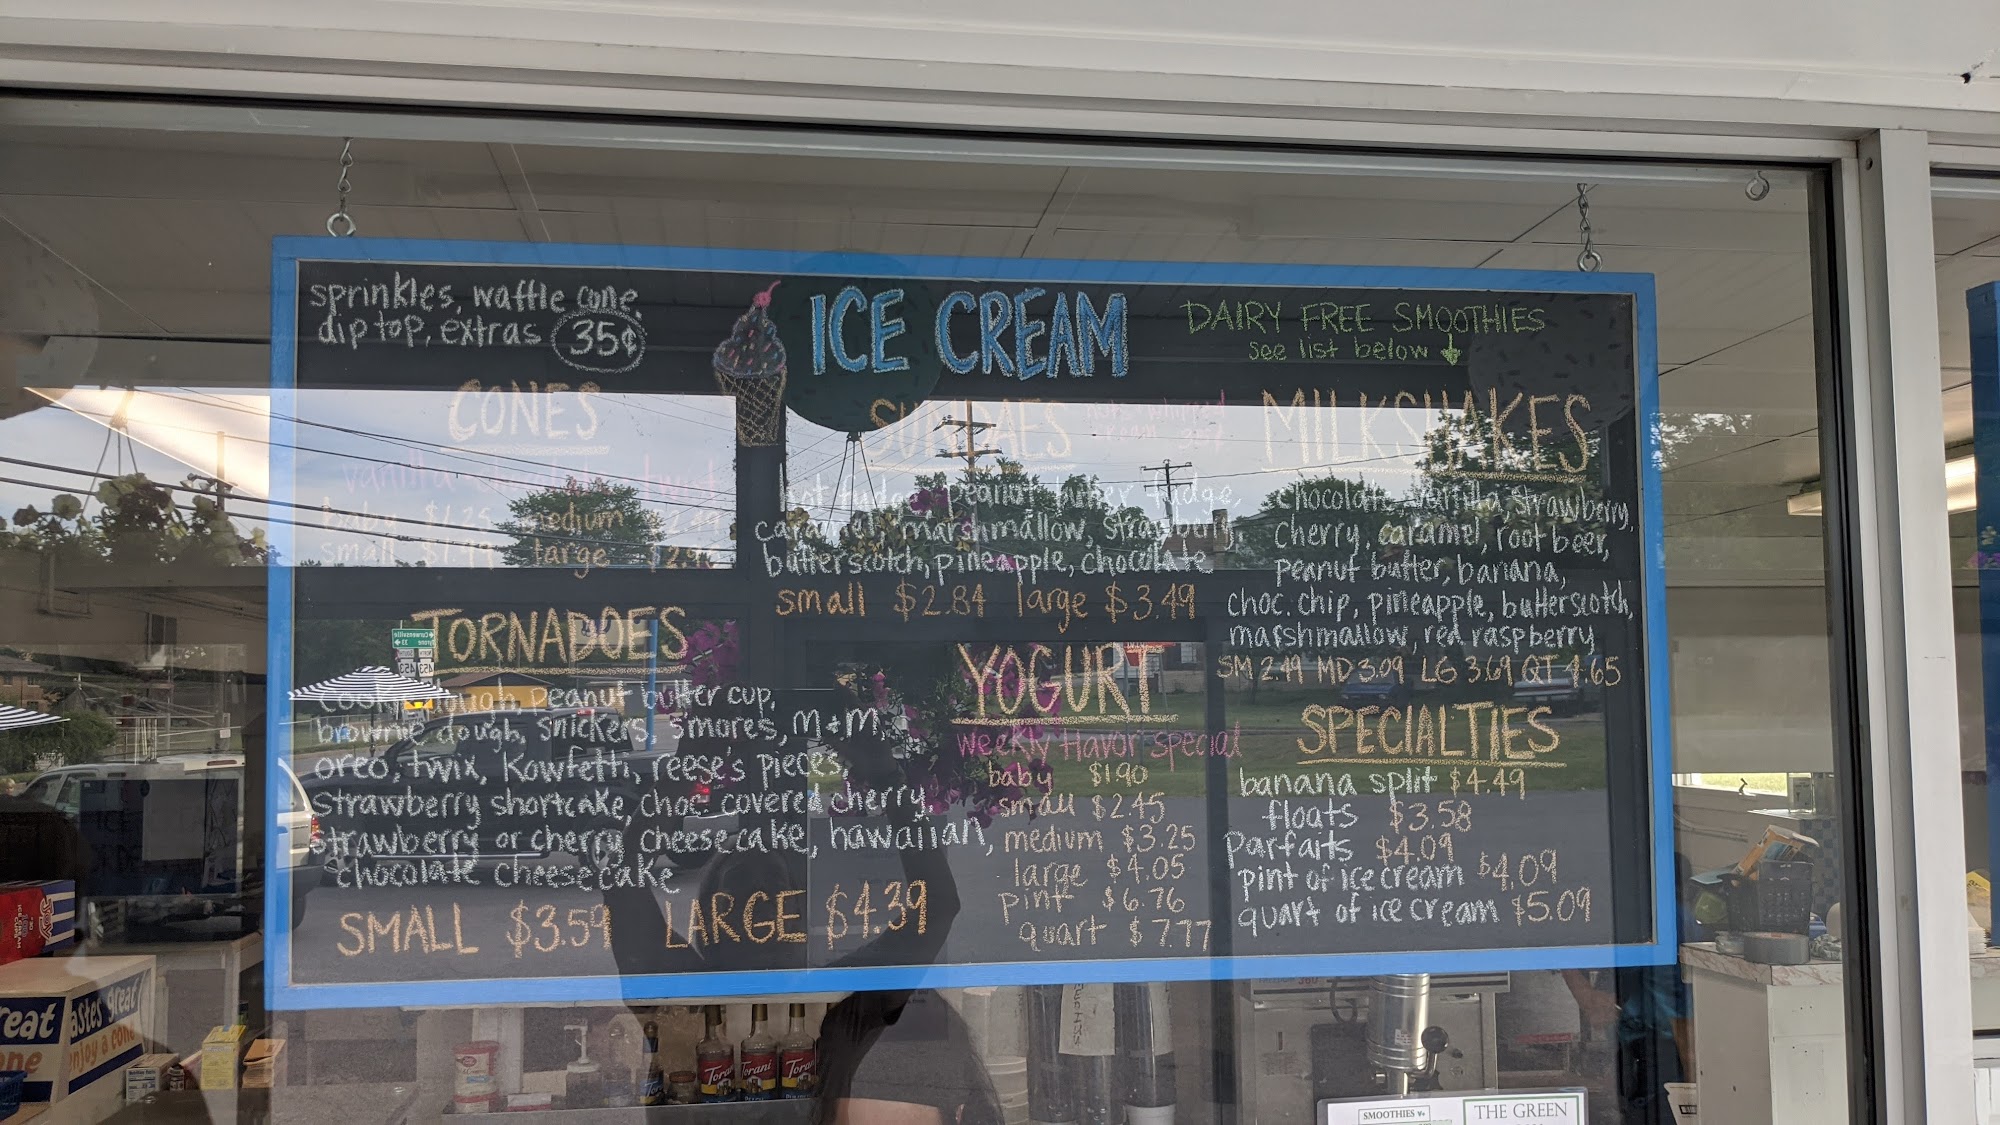 sprinkles, waffle cone,
dip top, extras 35¢
ICE CREAM
DAIRY FREE SMOOTHIES
see list below
CONES
vanilla chocolate twist
baby $1.25 medium
small large
SUNDAES
nuts whipped
cream
hot fudge, peanut butter fudge,
caramel, marshmallow, strawberry,
butterscotch, pineapple, chocolate
small $2.84 large $3.49
MILKSHAKES
chocolate, vanilla, strawberry,
cherry, caramel, root beer,
peanut butter, banana,
choc. chip, pineapple, butterscotch,
marshmallow, red raspberry
SM 2.49 MD 3.09 LG 3.69 QT 4.65
TORNADOES
cookie dough, peanut butter cup,
brownie dough, snickers, s'mores, m+m,
oreo, twix, Kowfetti, reese's pieces,
strawberry shortcake, choc. covered cherry,
strawberry or cherry cheesecake, hawaiian,
chocolate cheesecake
SMALL $3.59 LARGE $4.39
YOGURT
weekly flavor special
baby $1.90
small $2.45
medium $3.25
large $4.05
pint $6.76
quart $7.77
SPECIALTIES
banana split $4.49
floats $3.58
parfaits $4.09
pint of ice cream $4.09
quart of ice cream $5.09
Torani
SMOOTHIES
THE GREEN